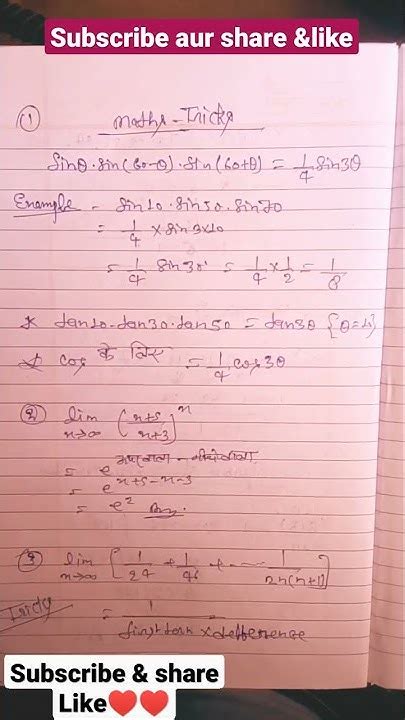 Subscribe aur share &like
① Maths - Tricks
sinθ·sin(60-θ)·sin(60+θ) = 1/4 sin3θ
Example - sin10·sin50·sin70
= 1/4 × sin 3×10
= 1/4 sin30° = 1/4 × 1/2 = 1/8
= tan3θ
cos के लिए = 1/4 cos3θ
② lim n→∞ (n+5/n+3)^n
= e
= e^n+5-n-3
= e² Ans.
③ lim n→∞ [1/24 + 1/46 + ---- 1/2n(n+1)]
Tricks = 1/first term × defference
Subscribe & share
Like❤️❤️